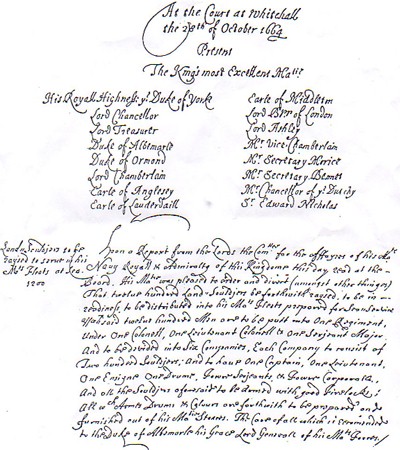 At the Court at Whitehall
the 28th of October 1664
Present
The King's most Excellent Matie
His Royall Highness ye Duke of Yorke
Lord Chancellor
Lord Treasurer
Duke of Albemarle
Duke of Ormond
Lord Chamberlain
Earle of Anglesey
Earle of Lauderdaill
Earle of Middleton
Lord Bpp of London
Lord Ashley
Mr Vice Chamberlain
Mr Secretary Morice
Mr Secretary Bennet
Mr Chancellor of ye Duchy
Sr Edward Nicholas
Land Souldjers to be
raysed to serve in his
Mats Fleets at Sea.
1200
Upon a Report from the Lords the Comrs for the affayres of his Mats
Navy Royall & Admiralty of this Kingdome this day read at the
Board. His Matie was pleased to order and direct (amongst other things)
That twelve hundred Land-Souldjers be forthwith raysed, to be in
readiness, to be distributed into his Mats Fleets prepared for Sea Service
said twelve hundred Men are to be putt into One Regiment,
Under One Colonell, One Lieutenant Colonell & One Serjeant Major
And to be divided into Six Companies, Each Company to consist of
Two hundred Souldjers, And to have One Captain, One Lieutenant,
One Ensigne One Drume, Fower Serjeants & Fower Corporalls,
And all the Souldjers aforesaid to be armed with good Firelocks,
All wch Armes Drums & Colours are forthwith to be prepared and
furnished out of his Mats Stores. The care of all which is recommended
to the Duke of Albemarle his Grace Lord Generall of his Mats Forces.